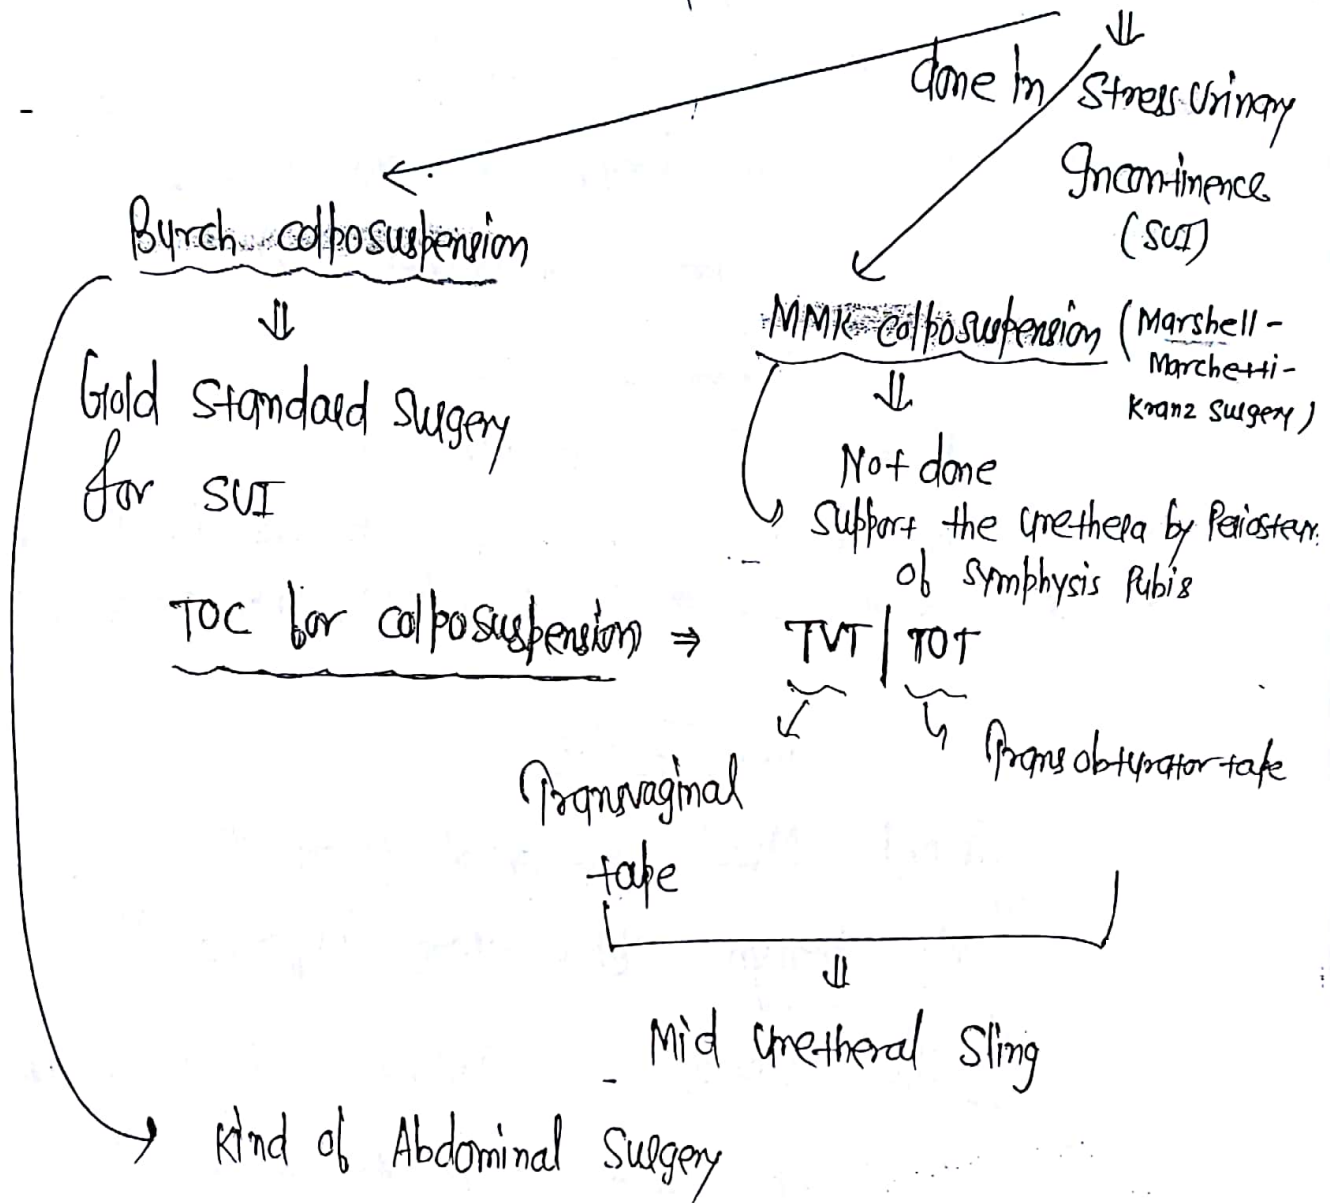 ⇓
done in Stress Urinary
Incontinence
(SUI)
Byrch colposuspension
⇓
Gold Standard Surgery
for SUI
MMK colposuspension (Marshell-
Marchetti-
Kranz surgery)
⇓
Not done
Support the Urethera by Periosteum
of Symphysis Pubis
TOC for colposuspension ⇒ TVT | TOT
Transobturator tape
Transvaginal
tape
⇓
Mid Uretheral Sling
Kind of Abdominal Surgery